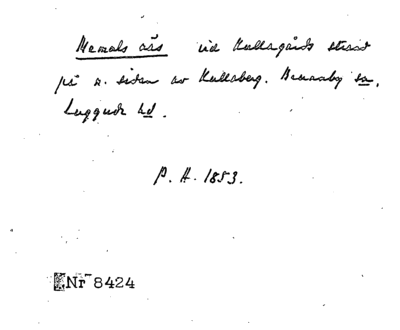 Memals åås vid Kullagårds strand
på n. sidan av Kullaberg. Brunnby sn,
Luggude hd.
P. A. 1853.
Nr 8424